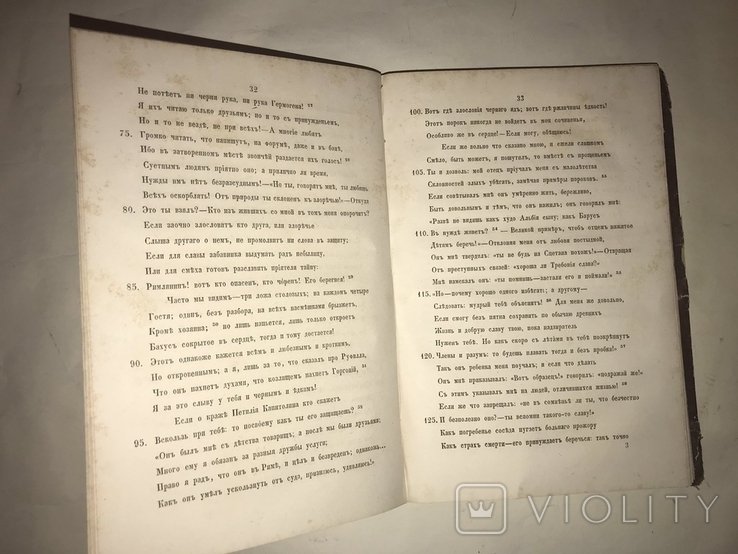 32
Не потѣетъ ни черни рука, ни рука Гермогена! ²³
Я ихъ читаю только друзьямъ; но и то съ принужденьемъ,
Но и то не вездѣ, не при всѣхъ!—А многіе любятъ
75. Громко читать, что напишутъ, на форумѣ, даже и въ банѣ,
Ибо въ затворенномъ мѣстѣ звончѣй раздается ихъ голосъ!
Суетнымъ людямъ пріятно оно; а прилично ли время,
Нужды имъ нѣтъ безразсуднымъ!—«Но ты, говорятъ мнѣ, ты любишь
Всѣхъ оскорблять! Отъ природы ты склоненъ къ злорѣчью!»—Откуда
80. Это ты взялъ?—Кто изъ жившихъ со мной въ томъ меня опорочитъ?
Если заочно злословитъ кто друга, или злорѣчье
Слыша другаго о немъ, не промолвитъ ни слова въ защиту;
Если для славы забавника выдумать радъ небылицу,
Или для смѣха готовъ разславить пріятеля тайну:
85. Римлянинъ! вотъ кто опасенъ, кто чёренъ! Его берегися!
Часто мы видимъ—три ложа столовыхъ; на каждомъ четыре
Гостя; одинъ, безъ разбора, на всѣхъ насмѣшками брызжетъ,
Кромѣ хозяина; ³⁰ но лишь напьется, лишь только откроетъ
Бахусъ сокрытое въ сердцѣ, тогда и тому достается!
90. Этотъ однакоже кажется всѣмъ и любезнымъ и кроткимъ,
Но откровеннымъ; а я, лишь за то, что сказалъ про Руфилла,
Что онъ пахнетъ духами, что козлищемъ пахнетъ Горгоній,
Я за это слыву у тебя и чернымъ и ѣдкимъ!
Если о кражѣ Петилія Капитолина кто скажетъ
95. Вскользь при тебѣ: то посвоему какъ ты его защищаешь?
«Онъ былъ мнѣ съ дѣтства товарищъ; а послѣ мы были друзьями;
Много ему я обязанъ за разныя дружбы услуги;
Право я радъ, что онъ въ Римѣ, и цѣлъ и безвреденъ; однакожь...
Какъ онъ умѣлъ ускользнуть отъ суда, признаюсь, удивляюсь!»
33
100. Вотъ гдѣ злословія чернаго ядъ; вотъ гдѣ ржавчины ѣдкость!
Этотъ порокъ никогда не войдетъ въ мои сочиненья,
Особливо же въ сердце!—Если могу, обѣщаюсь!
Если же вольно что сказано мною, и ежели слишкомъ
Смѣло, быть можетъ, я пошутилъ, то вмѣстѣ съ прощеньемъ
105. Ты и дозволь: мой отецъ пріучалъ меня съ малолѣтства
Склонностей злыхъ убѣгать, замѣчая примѣры пороковъ.
Если совѣтывалъ мнѣ онъ умѣренно жить, бережливо,
Быть довольнымъ и тѣмъ, что онъ нажилъ; онъ говорилъ мнѣ:
«Развѣ не видишь какъ худо Альбія сыну; какъ Барусъ
110. Въ нуждѣ живетъ? ³⁴ —Великой примѣръ, чтобъ отцевъ нажитое
Дѣтямъ беречь!»—Отклоняя меня отъ любови постыдной,
Онъ мнѣ твердилъ: «ты не будь изъ Сцетана похожъ!»—Отвращая
Отъ преступныхъ связей: «хороша ли Требонія слава?!»
Мнѣ намекалъ онъ: «ты помнишь—застали его и поймали!» ³⁵
115. «Но—почему хорошо одного избѣгать; а другому—
Слѣдовать: мудрый тебѣ объяснитъ! ³⁶ Для меня же довольно,
Если смогу безъ пятна сохранить по обычаю древнихъ
Жизнь и добрую славу твою, пока надзиратель
Нуженъ тебѣ! Но какъ скоро съ лѣтами въ тебѣ поокрѣпнутъ
120. Члены и разумъ: то будешь плавать тогда и безъ пробки!» ³⁷
Такъ онъ ребенка меня поучалъ; и если что дѣлать
Онъ мнѣ приказывалъ: «Вотъ образецъ!» говорилъ: «подражай же!»
Съ этимъ указывалъ мнѣ на людей, отличавшихся жизнью! ³⁸
Если же что запрещалъ: «но въ сомнѣньѣ ли ты, что безчестно
125. И безполезно оно!—ты вспомни такого-то славу!»
Какъ погребенье сосѣда пугаетъ больнаго прожору
Какъ страхъ смерти—его принуждаетъ беречься: такъ точно
3
VIOLITY